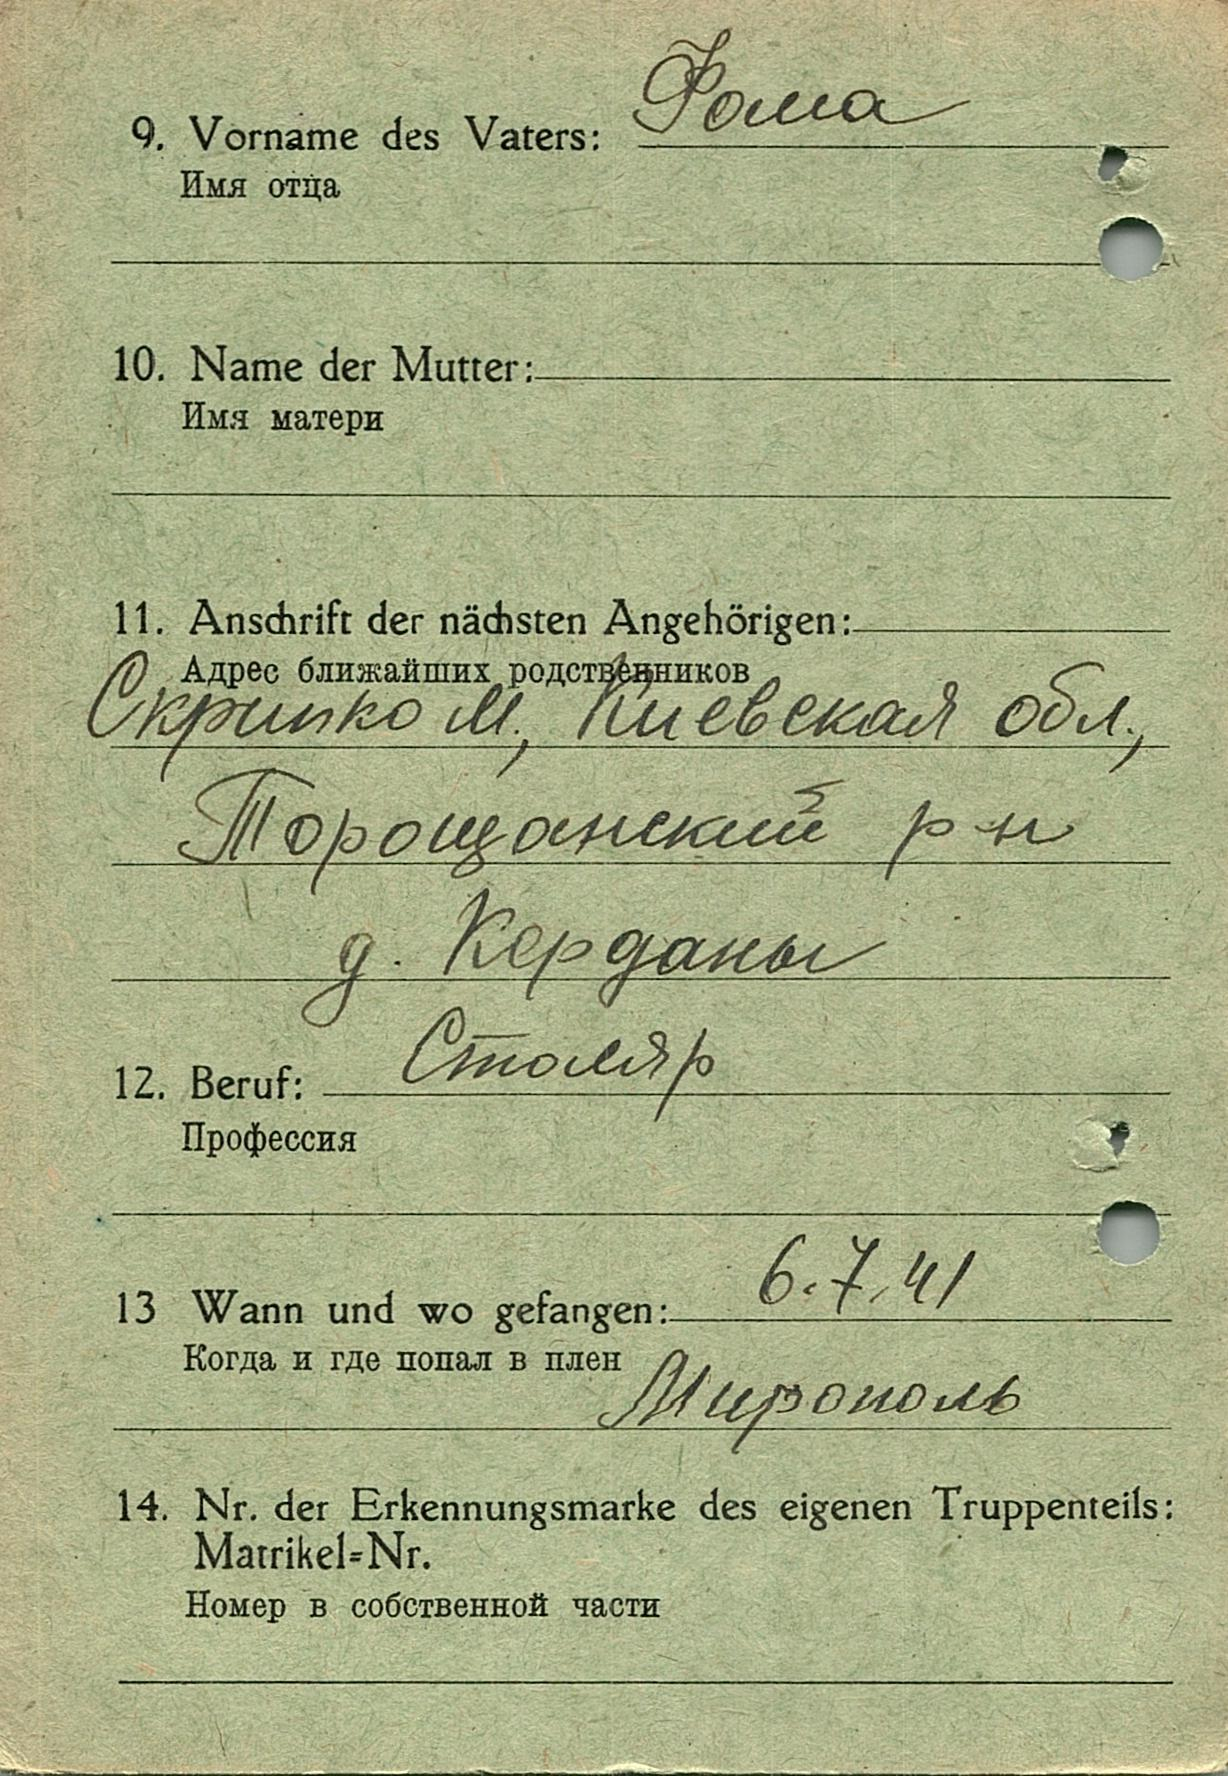 Фома
9. Vorname des Vaters:
Имя отца
10. Name der Mutter:
Имя матери
11. Anschrift der nächsten Angehörigen:
Адрес ближайших родственников
Скрипко М., Киевская обл.,
Торощанский р-н
д. Керданы
Столяр
12. Beruf:
Профессия
6.7.41
13 Wann und wo gefangen:
Когда и где попал в плен
Мирополь
14. Nr. der Erkennungsmarke des eigenen Truppenteils:
Matrikel=Nr.
Номер в собственной части